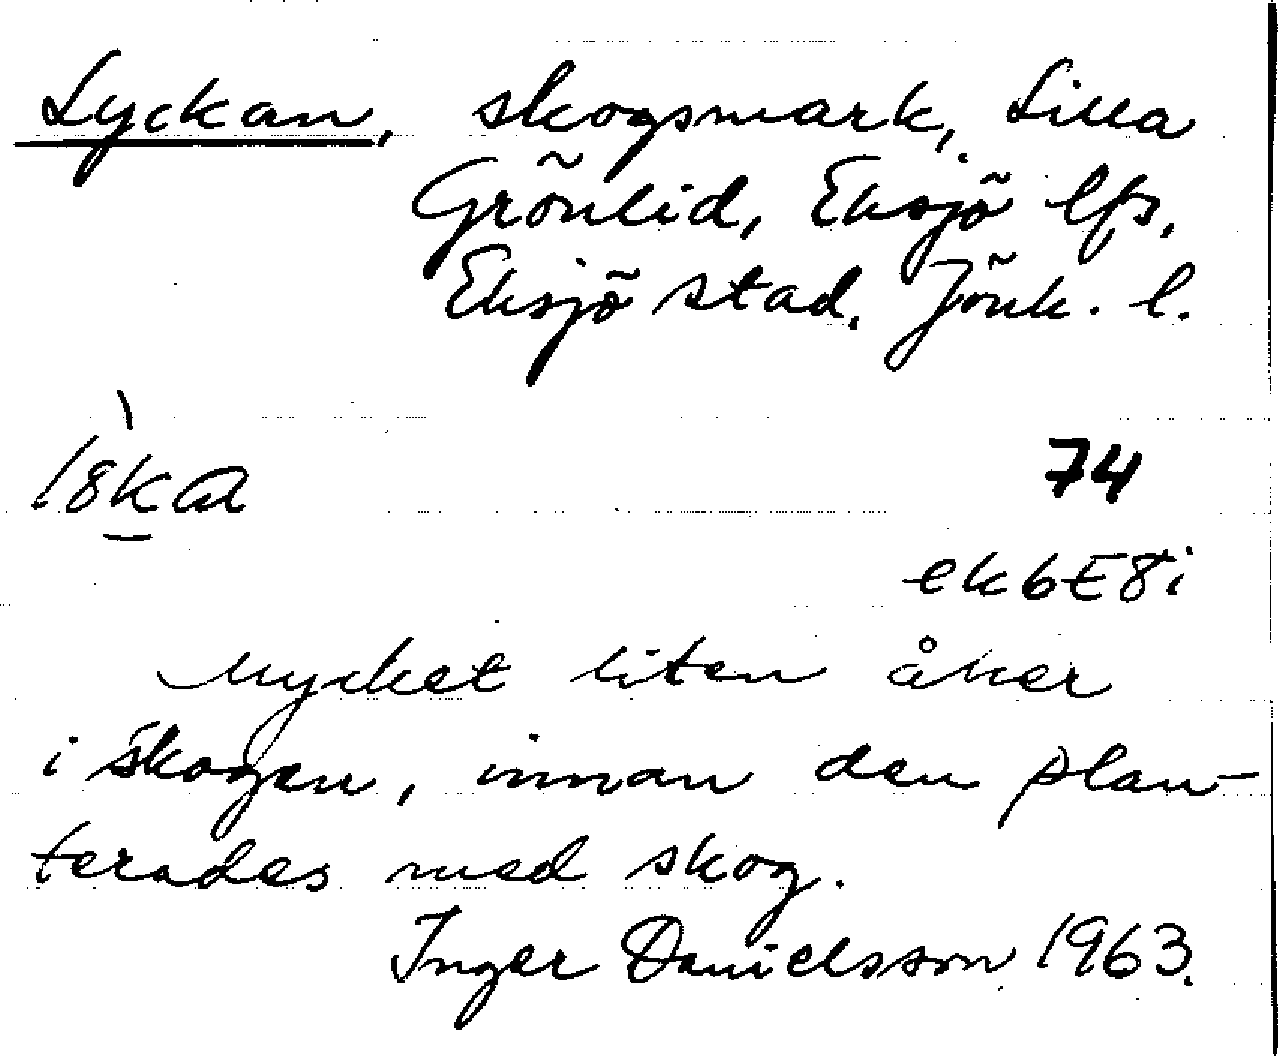 Lyckan, skogsmark, Lilla
Grönlid, Eksjö lfs,
Eksjö stad. Jönk. l.
74
ek6E8i
mycket liten åker
i skogen, innan den plan-
terades med skog.
Inger Danielsson 1963.